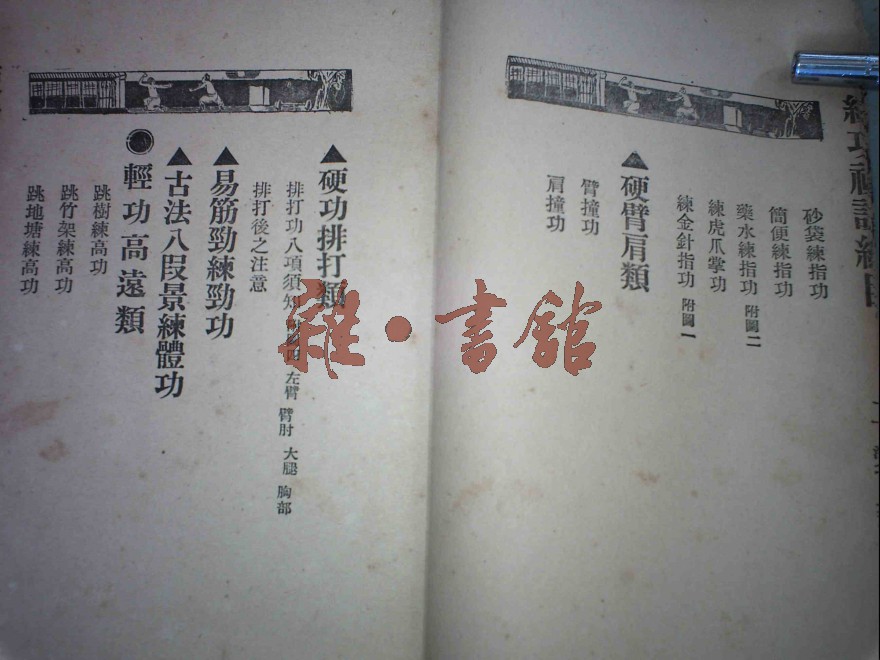 砂袋練指功
簡便練指功
藥水練指功 附圖二
練虎爪掌功
練金針指功 附圖一
▲硬臂肩類
臂撞功
肩撞功
▲硬功排打類
排打功八項須知 左臂 臂肘 大腿 胸部
排打後之注意
▲易筋勁練勁功
▲古法八叚景練體功
●輕功高遠類
跳樹練高功
跳竹架練高功
跳地塘練高功
雜·書館